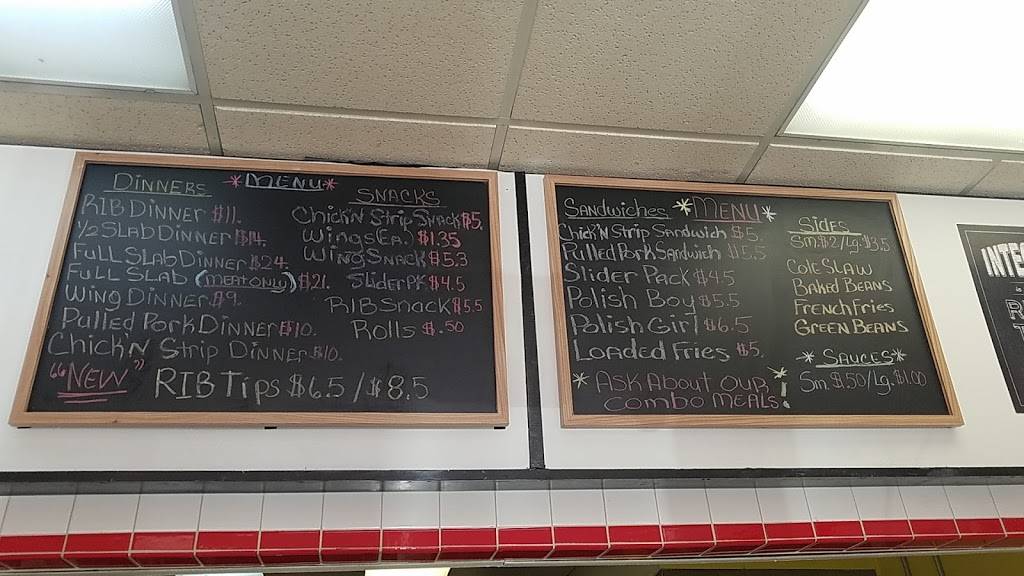 DINNERS *MENU*
RIB DINNER $11.
1/2 SLAB DINNER $14.
FULL SLAB DINNER $24
FULL SLAB (MEAT ONLY) $21.
WING DINNER $9.
PULLED PORK DINNER $10.
CHICK'N STRIP DINNER $10.
"NEW" RIB TIPS $6.5/$8.5
SNACKS
CHICK'N STRIP SNACK $5.
WINGS (EA.) $1.35
WING SNACK $5.3
SLIDER PK $4.5
RIB SNACK $5.5
ROLLS $.50
SANDWICHES *MENU*
CHICK'N STRIP SANDWICH $5.
PULLED PORK SANDWICH $5.5
SLIDER PACK $4.5
POLISH BOY $5.5
POLISH GIRL $6.5
LOADED FRIES $5.
*ASK ABOUT OUR
COMBO MEALS!*
SIDES
Sm. $2/Lg. $3.5
COLE SLAW
BAKED BEANS
FRENCH FRIES
GREEN BEANS
*SAUCES*
Sm. $.50/Lg. $1.00